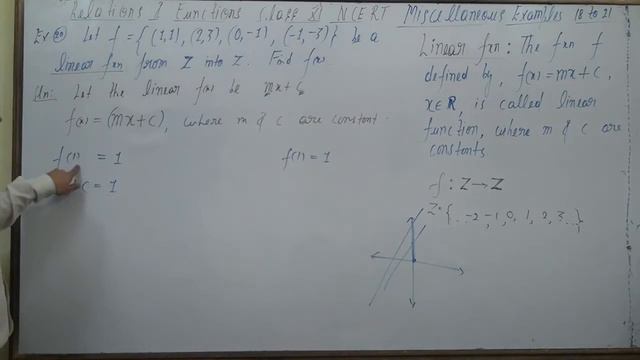 Relations & Functions (Class XI) NCERT Miscellaneous Examples 18 to 21
Ex 20 Let f = { (1,1), (2,3), (0,-1), (-1,-3)} be a
linear fxn from Z into Z. Find f(x)
Let the linear f(x) be mx+c
f(x) = (mx+c), where m & c are constant.
f(1) = 1
c = 1
f(1) = 1
Linear fxn : The fxn f
defined by, f(x) = mx+c,
x∈R, is called linear
function, where m & c are
constants
f : Z→Z
Z = {...-2, -1, 0, 1, 2, 3...}